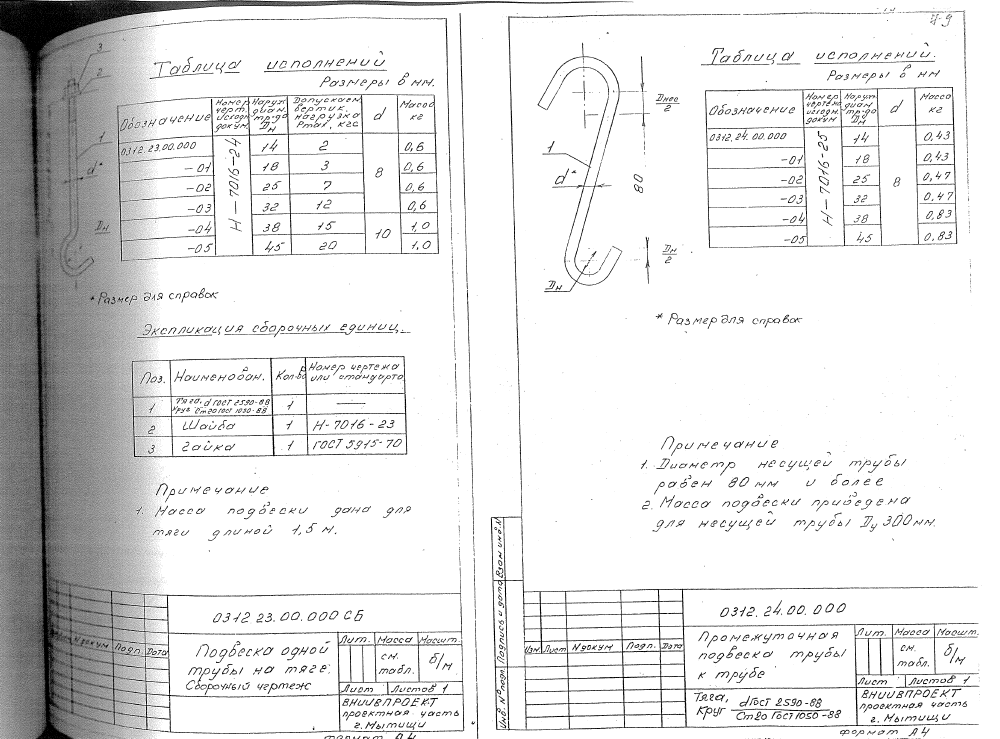 3
2
1
d*
Dн
Таблица исполнений
Размеры в мм.
Обозначение
Номер черт. исходн. докум.
Наруж. диам. тр-да Dн
Допускаем. вертик. нагрузка Pmax, кгс
d
Масса кг
Н-7016-24
0312.23.00.000 14 2 8 0,6
-01 18 3 0,6
-02 25 7 0,6
-03 32 12 0,6
-04 38 15 10 1,0
-05 45 20 1,0
* Размер для справок
Экспликация сборочных единиц
Поз. Наименован. Кол-во Номер чертежа или стандарта
1 Тяга, d ГОСТ 2590-88 1 —
Круг Ст20 ГОСТ 1050-88
2 Шайба 1 Н-7016-23
3 Гайка 1 ГОСТ 5915-70
Примечание
1. Масса подвески дана для
тяги длиной 1,5 м.
0312 23.00.000 СБ
N докум Подп. Дата
Подвеска одной
трубы на тяге.
Сборочный чертеж
Лит. Масса Масшт.
см. табл. б/м
Лист Листов 1
ВНИИВПРОЕКТ
проектная часть
г. Мытищи
формат А4
4-9
Dнес/2
1
d*
80
Dн/2
Dн
Таблица исполнений.
Размеры в мм
Обозначение
Номер чертежа исходн. докум
Наруж. диам. тр-да Dн
d
Масса кг
Н-7016-25
0312.24.00.000 14 8 0,43
-01 18 0,43
-02 25 0,47
-03 32 0,47
-04 38 0,83
-05 45 0,83
* Размер для справок
Примечание
1. Диаметр несущей трубы
равен 80 мм и более
2. Масса подвески приведена
для несущей трубы Dу 300 мм.
Инв. N° подл. Подпись и дата Взам инв. N
0312.24.00.000
Изм Лист N докум Подп. Дата
Промежуточная
подвеска трубы
к трубе
Лит. Масса Масшт.
см. табл. б/м
Лист Листов 1
Тяга, d ГОСТ 2590-88
Круг Ст20 ГОСТ 1050-88
ВНИИВПРОЕКТ
проектная часть
г. Мытищи
формат А4